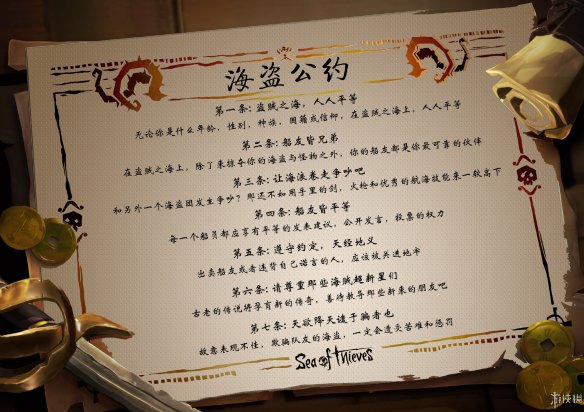 海盗公约
第一条: 盗贼之海，人人平等
无论你是什么年龄，性别，种族，国籍或信仰，在盗贼之海上，人人平等
第二条: 船友皆兄弟
在盗贼之海上，除了来掠夺你的海盗与怪物之外，你的船友都是你最可靠的伙伴
第三条: 让海浪卷走争吵吧
和另外一个海盗团发生争吵？那还不如用手里的剑，火枪和优秀的航海技能来一较高下
第四条: 船友皆平等
每一个船员都应享有平等的发表建议，公开发言，投票的权力
第五条: 遵守约定，天经地义
出卖船友或者违背自己诺言的人，应该被关进地牢
第六条: 请尊重那些海贼超新星们
古老的传说将孕育新的传奇，善待教导那些新来的朋友吧
第七条: 天欲降天谴于骗者也
故意表现不佳，欺骗队友的海盗，一定会遭受苦难和惩罚
Sea of Thieves
游侠网